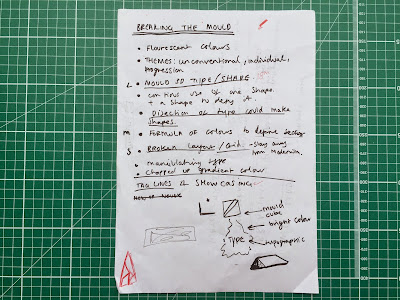 BREAKING THE MOULD
• Flourescent colours
• THEMES: unconventional, individual,
progression
L • MOULD 3D TYPE/SHAPE.
• continous use of one shape.
+ a shape to defy it.
• Direction of type could make
shapes.
M • FORMULA OF COLOURS to define
S • BROKEN Layout/Grid. - stay away
from Modernism.
• manipulating type
• chopped up gradient colour
TAG LINES & SHOWCASING.
mould
cube
bright colour
Type
typographic